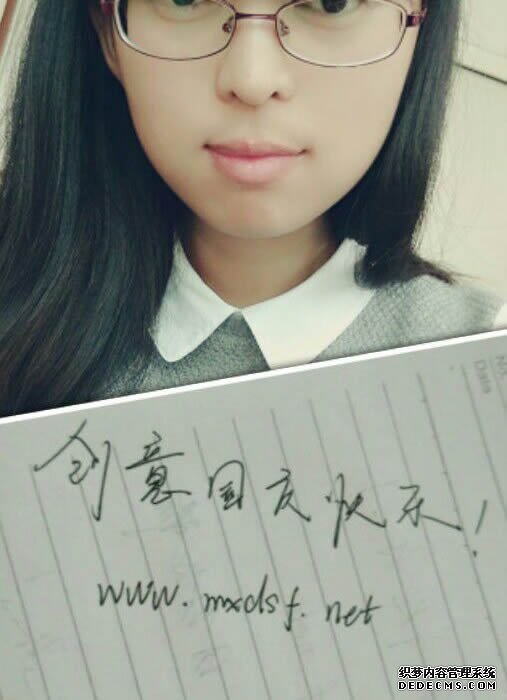 No
Date
创意国庆快乐!
www.mxdsf.net
织梦内容管理系统
DEDECMS.COM